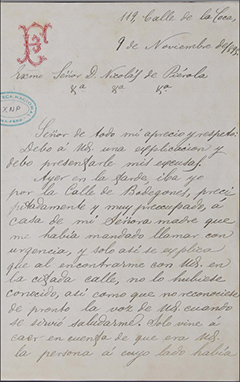 F
119, Calle de la Coca,
9 de Noviembre de 1895
Excmo Señor D. Nicolás de Piérola
Xa Xa Xa
XNP
Señor de todo mi aprecio y respeto:
Debo á Ud. una explicacion y
debo presentarle mis excusas.
Ayer en la tarde, iba yo
por la Calle de Bodegones, preci
pitadamente y muy preocupado, á
casa de mi Señora madre que
me había mandado llamar con
urgencia, y solo así se explica
que al encontrarme con Ud. en
la citada calle, no lo hubiese
conocido, así como que no reconociese
de pronto la voz de Ud. cuando
se sirvió saludarme. Solo vine á
caer en cuenta de que era Ud.
la persona á cuyo lado había